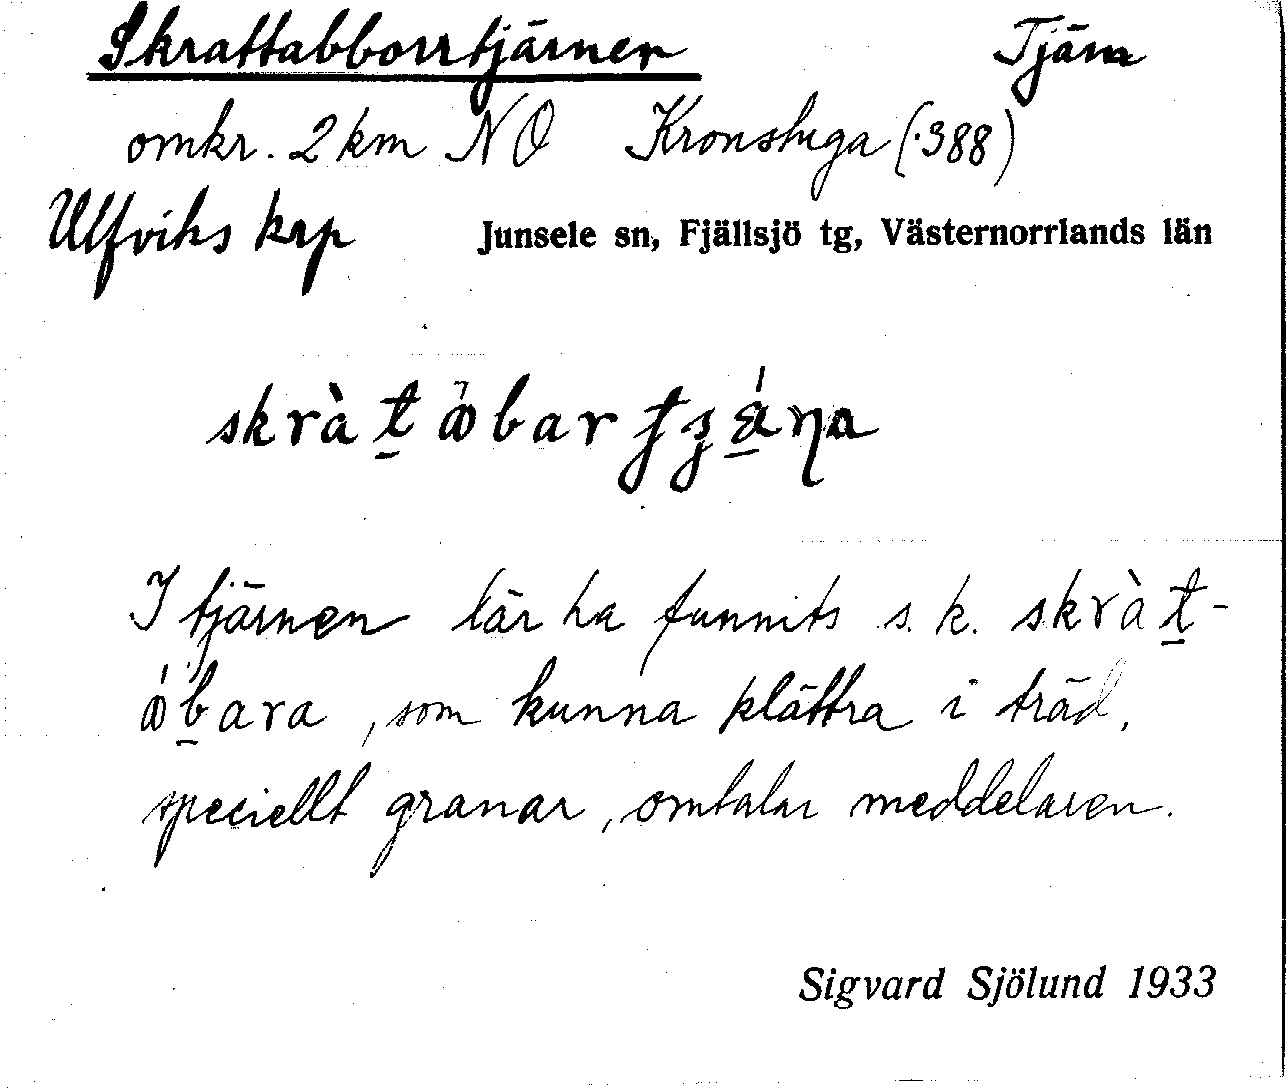 Skrattabborrtjärnen Tjärn
omkr. 2 km NO Kronstuga (.388)
Ulfviks krp Junsele sn, Fjällsjö tg, Västernorrlands län
I tjärnen lär ha funnits s. k. skràt-
åbara, som kunna klättra i träd,
speciellt granar, omtalar meddelaren.
Sigvard Sjölund 1933